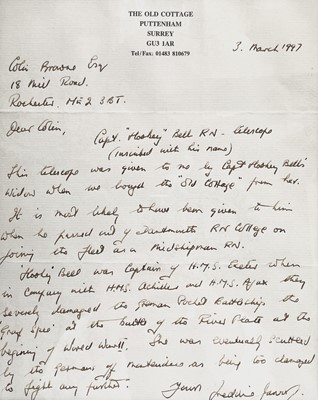 THE OLD COTTAGE
PUTTENHAM
SURREY
GU3 1AR
Tel/Fax: 01483 810679
3. March 1997
Colin Browne Esq
18 Mill Road.
Rochester. ME2 3BT.
Dear Colin,
Capt. "Hookey" Bell RN - telescope
(inscribed with his name)
This telescope was given to me by Capt Hookey Bell's
Widow when we bought the "Old Cottage" from her.
It is most likely to have been given to him
when he passed out of Dartmouth RN College on
joining the Fleet as a Midshipman RN.
"Hooky" Bell was Captain of H.M.S. Exeter when
in company with H.M.S. Achilles and H.M.S. Ajax they
severely damaged the German Pocket Battleship the
Graf Spee at the battle of the River Plate at the
beginning of World War II. She was eventually scuttled
by the Germans off Montevideo as being too damaged
to fight any further.
Yours